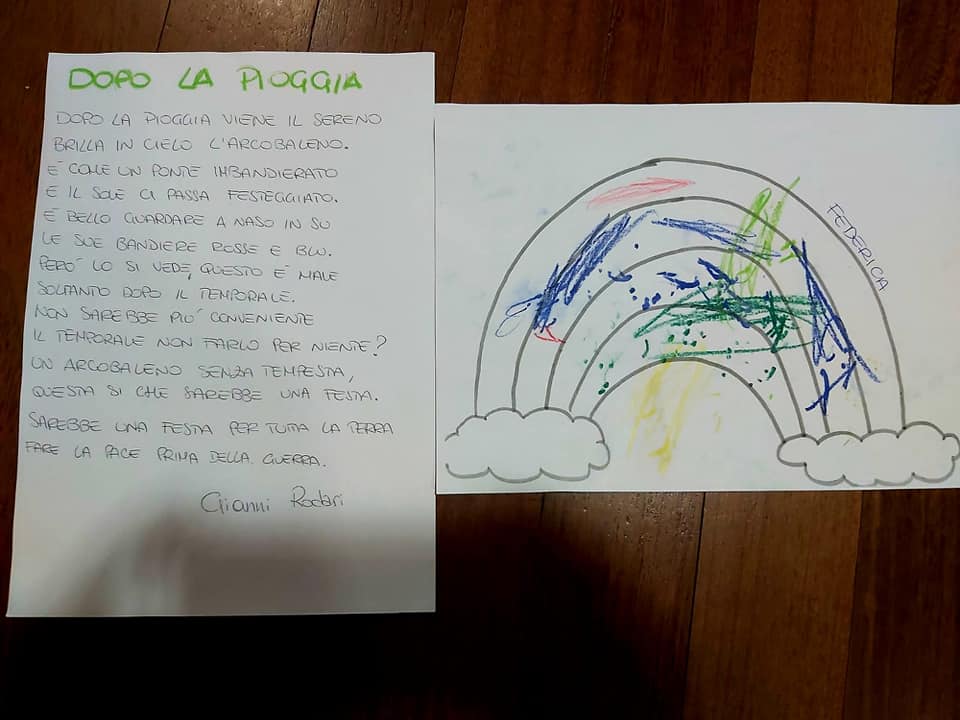 DOPO LA PIOGGIA
DOPO LA PIOGGIA VIENE IL SERENO
BRILLA IN CIELO L'ARCOBALENO.
E' COME UN PONTE IMBANDIERATO
E IL SOLE CI PASSA FESTEGGIATO.
E' BELLO GUARDARE A NASO IN SU
LE SUE BANDIERE ROSSE E BLU.
PERO' LO SI VEDE, QUESTO E' MALE
SOLTANTO DOPO IL TEMPORALE.
NON SAREBBE PIU' CONVENIENTE
IL TEMPORALE NON FARLO PER NIENTE?
UN ARCOBALENO SENZA TEMPESTA,
QUESTA SI CHE SAREBBE UNA FESTA.
SAREBBE UNA FESTA PER TUTTA LA TERRA
FARE LA PACE PRIMA DELLA GUERRA.
Gianni Rodari
FEDERICA